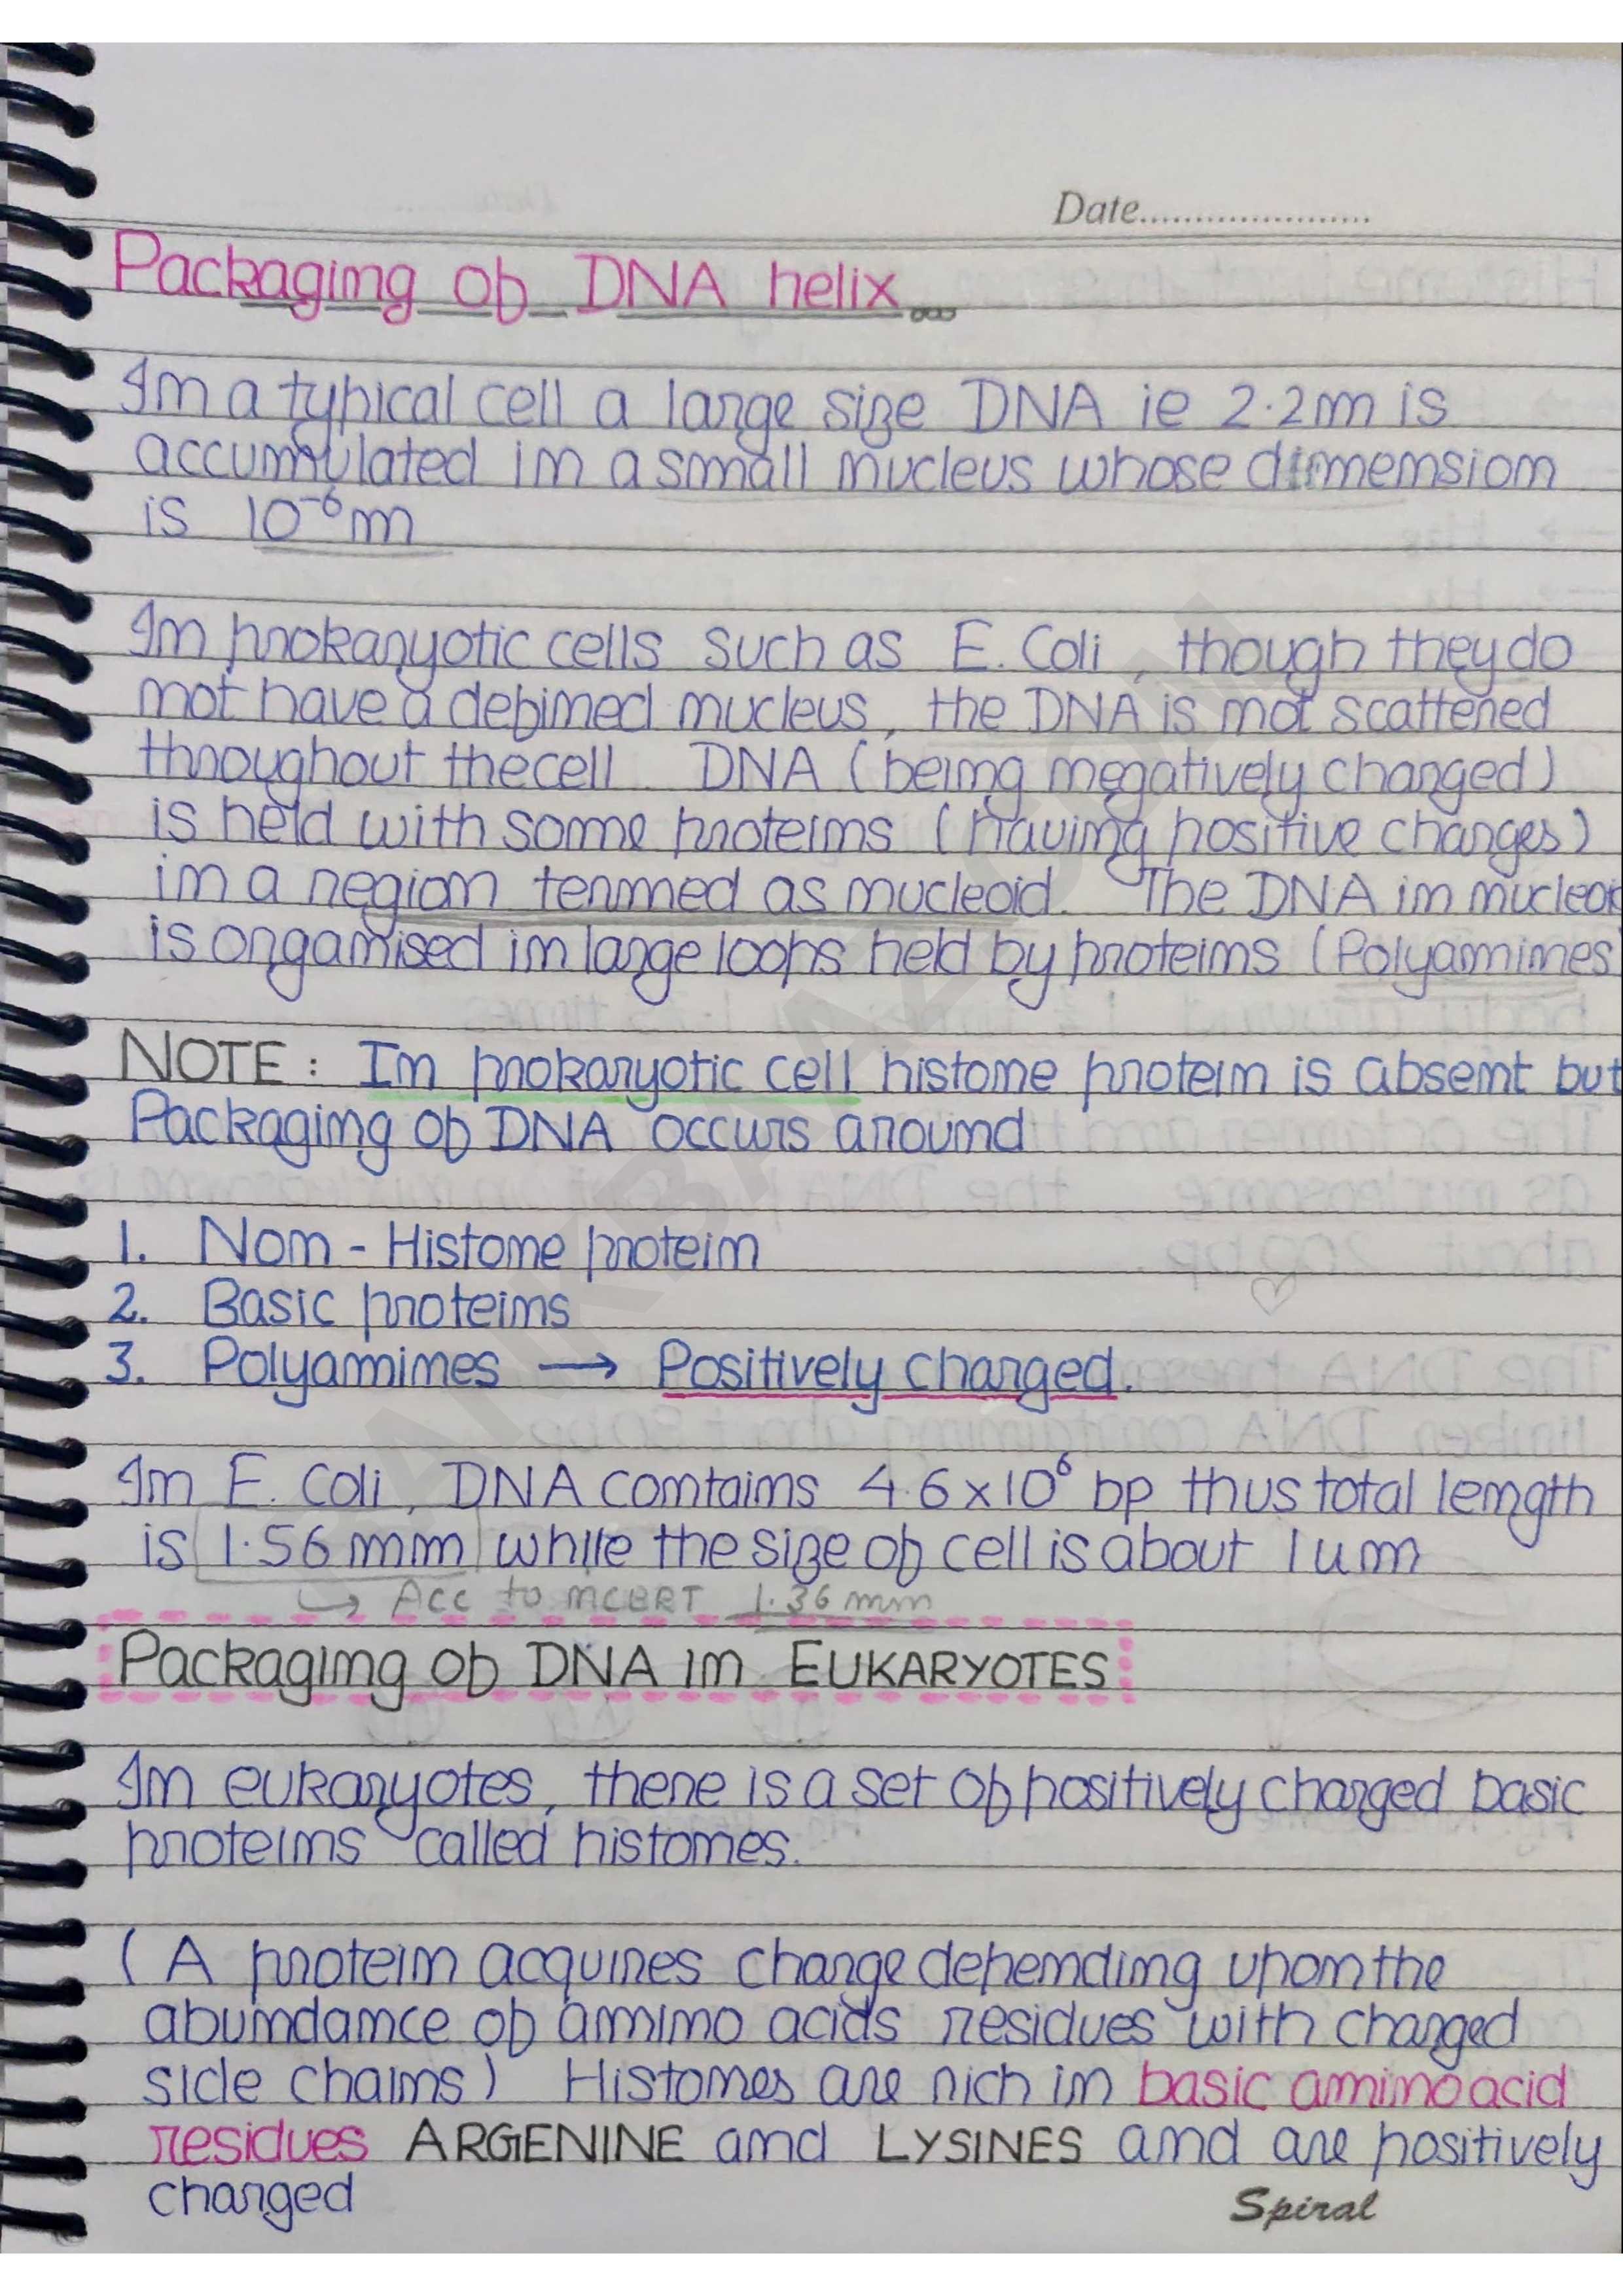 Date.....................
Packaging of DNA helix
In a typical cell a large size DNA ie 2.2m is
accumulated in a small nucleus whose dimension
is 10⁻⁶m
In prokaryotic cells such as E. Coli, though they do
not have a defined nucleus, the DNA is not scattered
throughout the cell. DNA (being negatively charged)
is held with some proteins (having positive charges)
in a region termed as nucleoid. The DNA in nucleoi
is organised in large loops held by proteins (Polyamines
NOTE: In prokaryotic cell histone protein is absent but
Packaging of DNA occurs around
1. Non - Histone protein
2. Basic proteins
3. Polyamines → Positively charged.
In E. Coli, DNA contains 4.6x10⁶ bp thus total length
is 1.56 mm while the size of cell is about 1um
↳ Acc to NCERT 1.36 mm
Packaging of DNA in EUKARYOTES
In eukaryotes, there is a set of positively charged basic
proteins called histones.
(A protein acquires charge depending upon the
abundance of amino acids residues with charged
side chains) Histones are rich in basic amino acid
residues ARGENINE and LYSINES and are positively
charged
Spiral